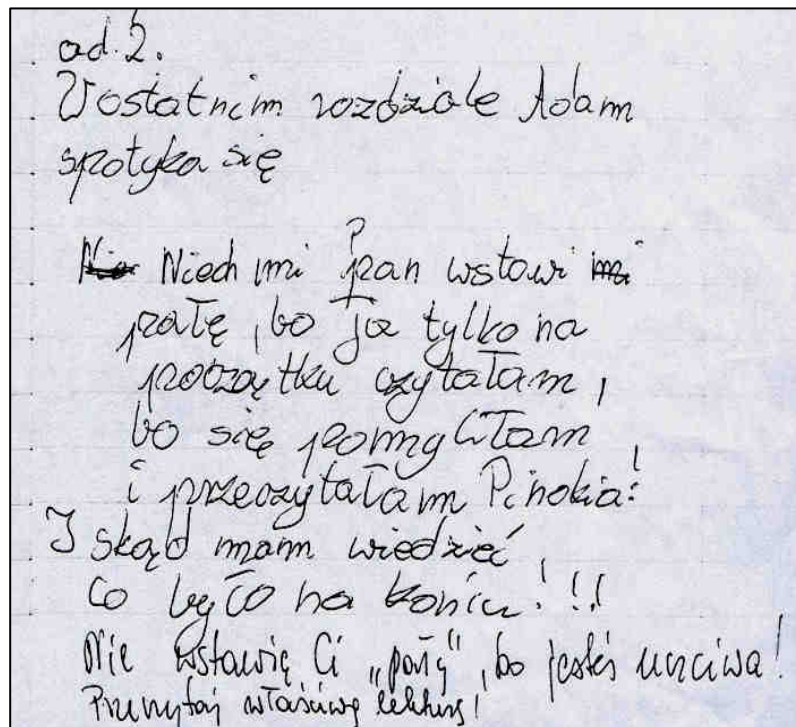 ad. 2.
W ostatnim rozdziale Adam
spotyka się
P
Niech mi pan wstawi
pałę, bo ja tylko na
początku czytałam,
bo się pomyliłam,
i przeczytałam Pinokia!
I skąd mam wiedzieć,
co było na końcu!!!
Nie wstawię Ci „pały”, bo jesteś uczciwa!
Przeczytaj właściwą lekturę!